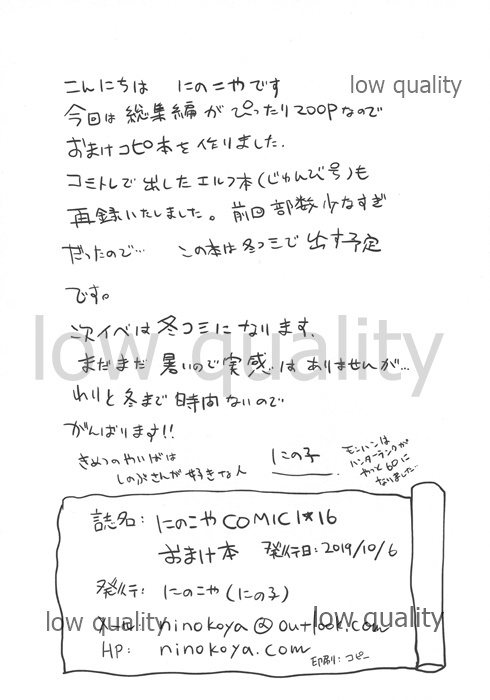 こんにちは　にのこやです
low quality
今回は総集編がぴったり200Pなので
おまけコピ本を作りました.
コミトレで出したエルフ本(じゅんび号)も
再録いたしました。前回部数少なすぎ
だったので… この本は冬コミで出す予定
です。
low quality
次イベは冬コミになります.
まだまだ暑いので実感はありませんが…
わりと冬まで時間ないので
がんばります!!
きめつのやいばは
しのぶさんが好きな人
にの子
モンハンは
ハンターランクが
やっと60に
なりました…
誌名: にのこやCOMIC1★16
おまけ本 発行日:2019/10/6
発行: にのこや(にの子)
low quality
メール: ninokoya@outlook.com
low quality
HP: ninokoya.com
印刷:コピー